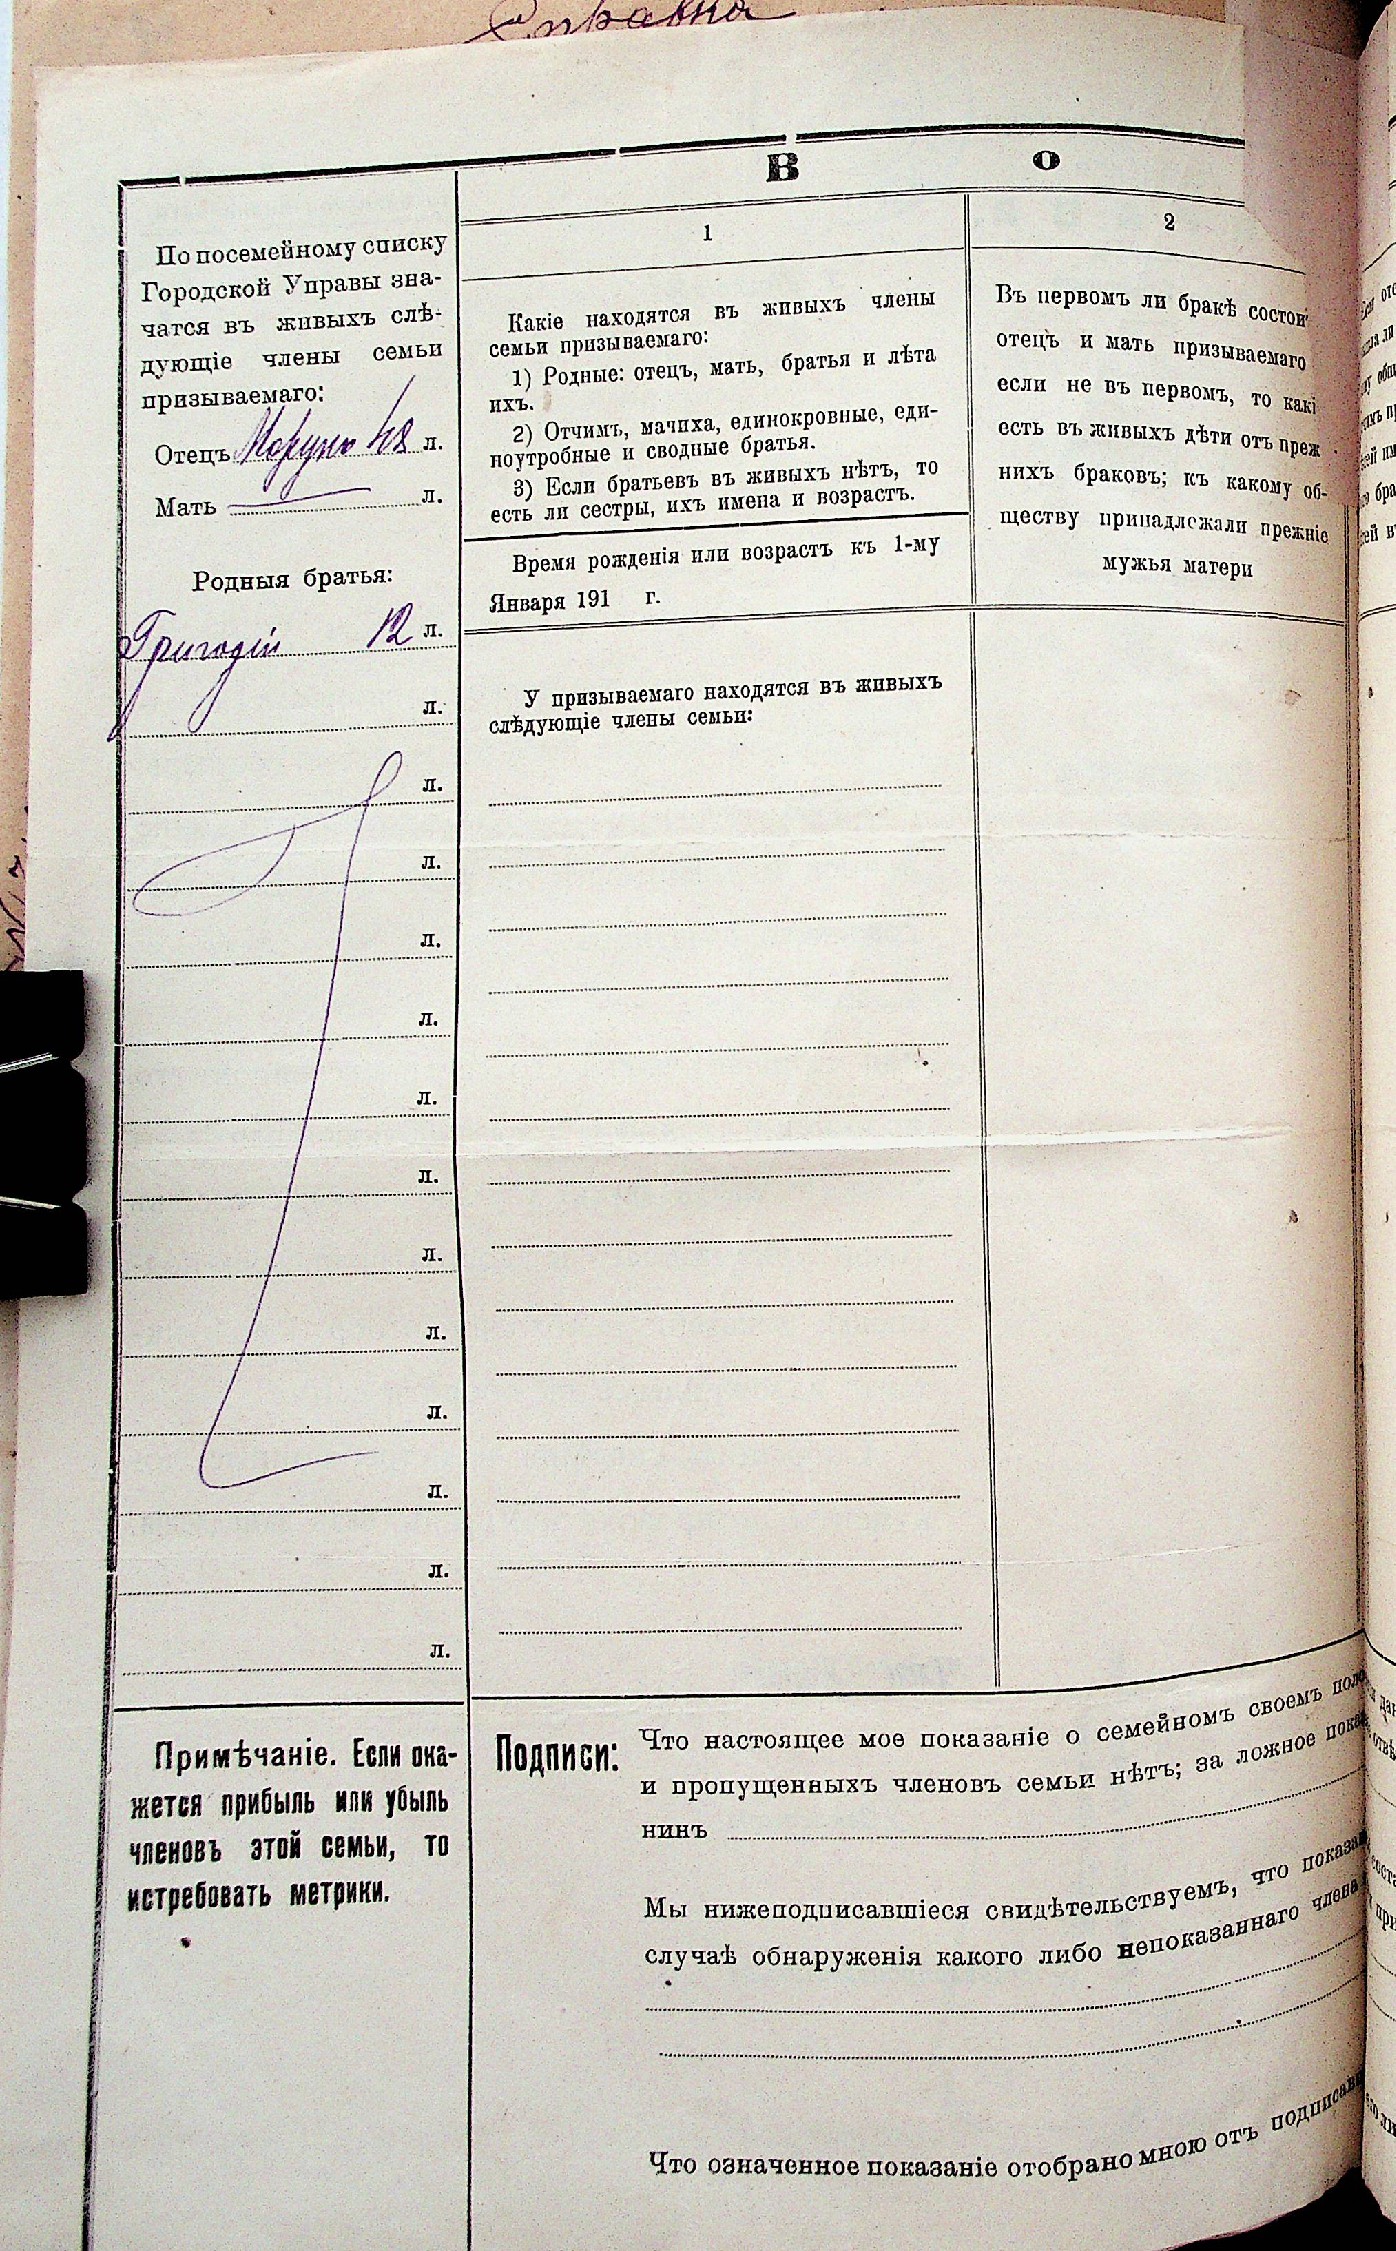 Справка
В О
По посемейному списку
Городской Управы зна-
чатся въ живыхъ слѣ-
дующіе члены семьи
призываемаго:
Отецъ 48 л.
Мать л.
Родныя братья:
Григорій 12 л.
л.
л.
л.
л.
л.
л.
л.
л.
л.
л.
л.
л.
л.
Примѣчаніе. Если ока-
жется прибыль или убыль
членовъ этой семьи, то
истребовать метрики.
1
Какіе находятся въ живыхъ члены
семьи призываемаго:
1) Родные: отецъ, мать, братья и лѣта
ихъ.
2) Отчимъ, мачиха, единокровные, еди-
ноутробные и сводные братья.
3) Если братьевъ въ живыхъ нѣтъ, то
есть ли сестры, ихъ имена и возрастъ.
Время рожденія или возрастъ къ 1-му
Января 191 г.
У призываемаго находятся въ живыхъ
слѣдующіе члены семьи:
2
Въ первомъ ли бракѣ состои
отецъ и мать призываемаго
если не въ первомъ, то какі
есть въ живыхъ дѣти отъ преж
нихъ браковъ; къ какому об-
ществу принадлежали прежніе
мужья матери
Подписи:
Что настоящее мое показаніе о семейномъ своемъ поло
и пропущенныхъ членовъ семьи нѣтъ; за ложное пока
нинъ
Мы нижеподписавшіеся свидѣтельствуемъ, что показа
случаѣ обнаруженія какого либо непоказаннаго члена
Что означенное показаніе отобрано мною отъ подписав